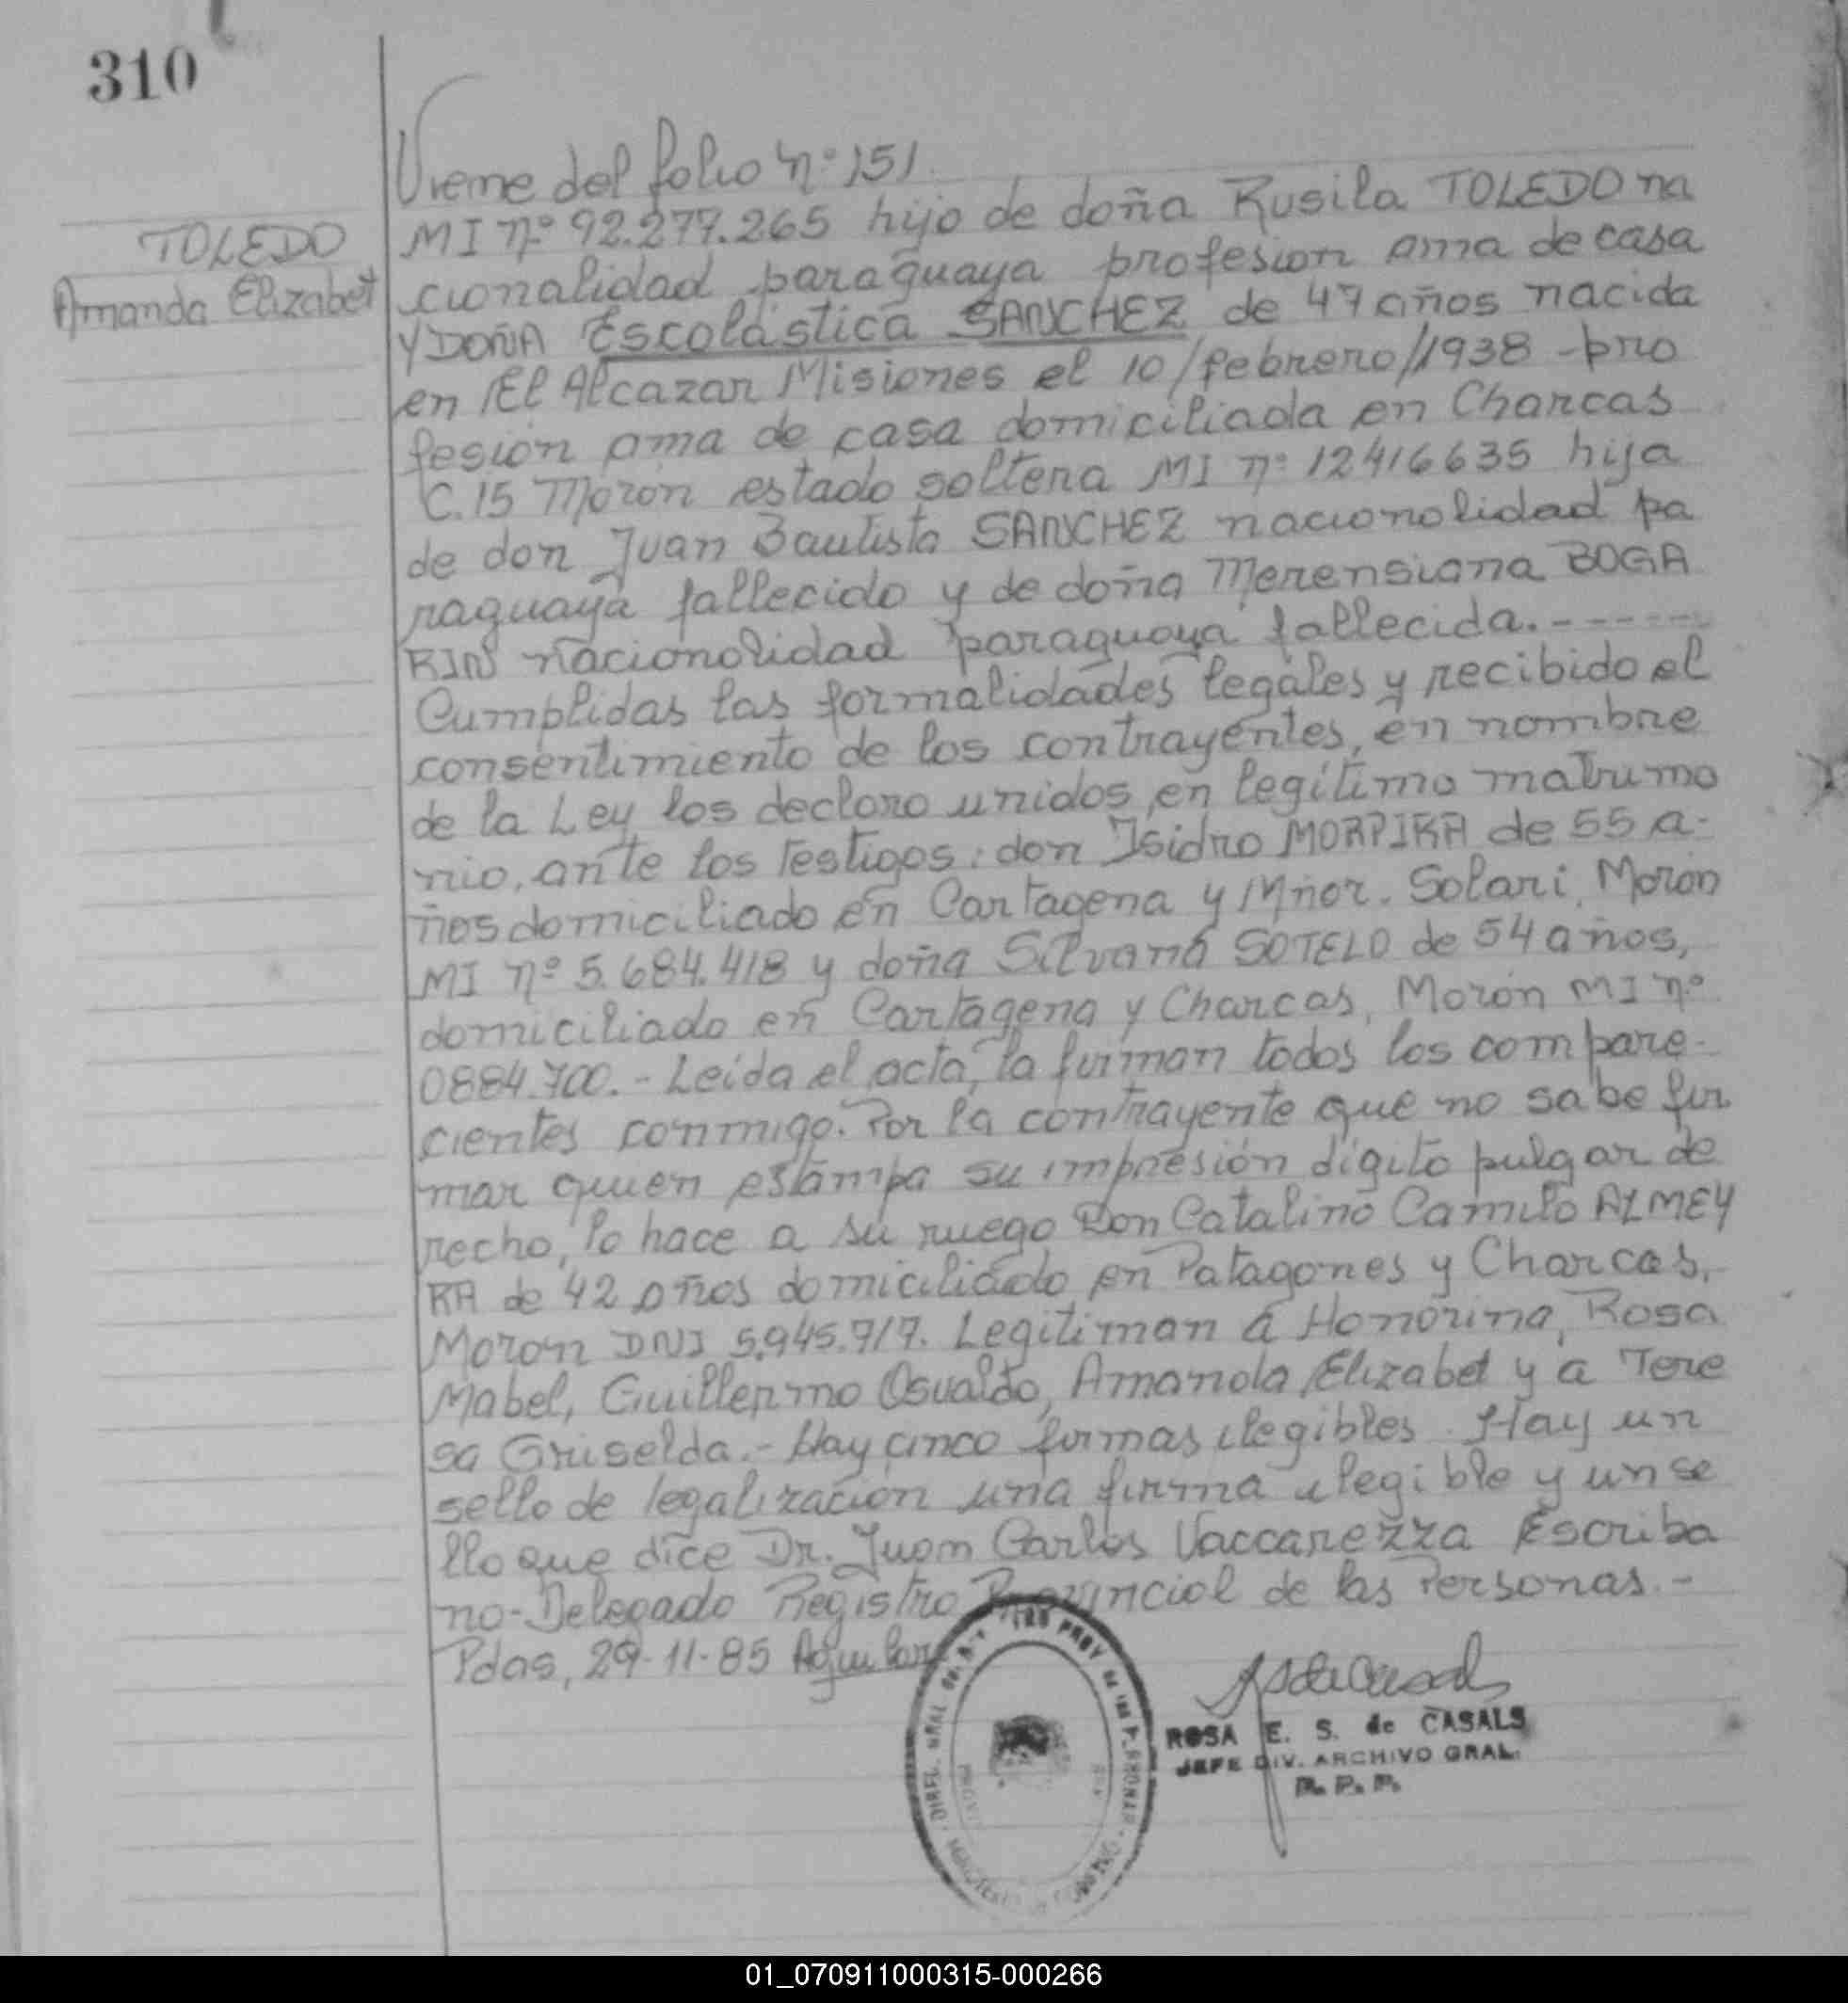 310
Vieme del folio nº 151
TOLEDO
Amanda Elizabet
MI nº 92.277.265 hijo de doña Rusila TOLEDO na
cionalidad paraguaya profesion ama de casa
Y DOÑA Escolástica SANCHEZ de 47 años nacida
en El Alcazar Misiones el 10/febrero/1938 - pro
fesión ama de casa domiciliada en Charcas
C.15 Morón estado soltera MI nº 12416635 hija
de don Juan Bautista SANCHEZ nacionalidad pa
raguaya fallecido y de doña Merensiana BOGA
RIN nacionalidad paraguaya fallecida.------
Cumplidas las formalidades legales y recibido el
consentimiento de los contrayentes, en nombre
de la Ley los declaro unidos en legítimo matrimo
nio, ante los testigos: don Isidro de 55 a-
ños domiciliado en Cartagena y Mñor. Solari, Morón
MI nº 5.684.418 y doña Silvana SOTELO de 54 años,
domiciliado en Cartagena y Charcas, Morón MI nº
0884.700. - Leída el acta, la firman todos los compare-
cientes conmigo. Por la contrayente que no sabe fir
mar quien estampa su impresión dígito pulgar de
recho, lo hace a su ruego Don Catalino Camilo ALMEY
RA de 42 años domiciliado en Patagones y Charcas,
Moron DNI 5.945.717. Legitiman a Honorina, Rosa
Mabel, Guillermo Osvaldo, Amanda Elizabet y a Tere
sa Griselda. - Hay cinco firmas ilegibles. Hay un
sello de legalización una firma ilegible y un se
llo que dice Dr. Juan Carlos Vaccarezza Escriba
no - Delegado Registro Provincial de las Personas. -
Pdas, 29-11-85 Aguilar
ROSA E. S. de CASALS
JEFE DIV. ARCHIVO GRAL.
R. P. P.
01_070911000315-000266